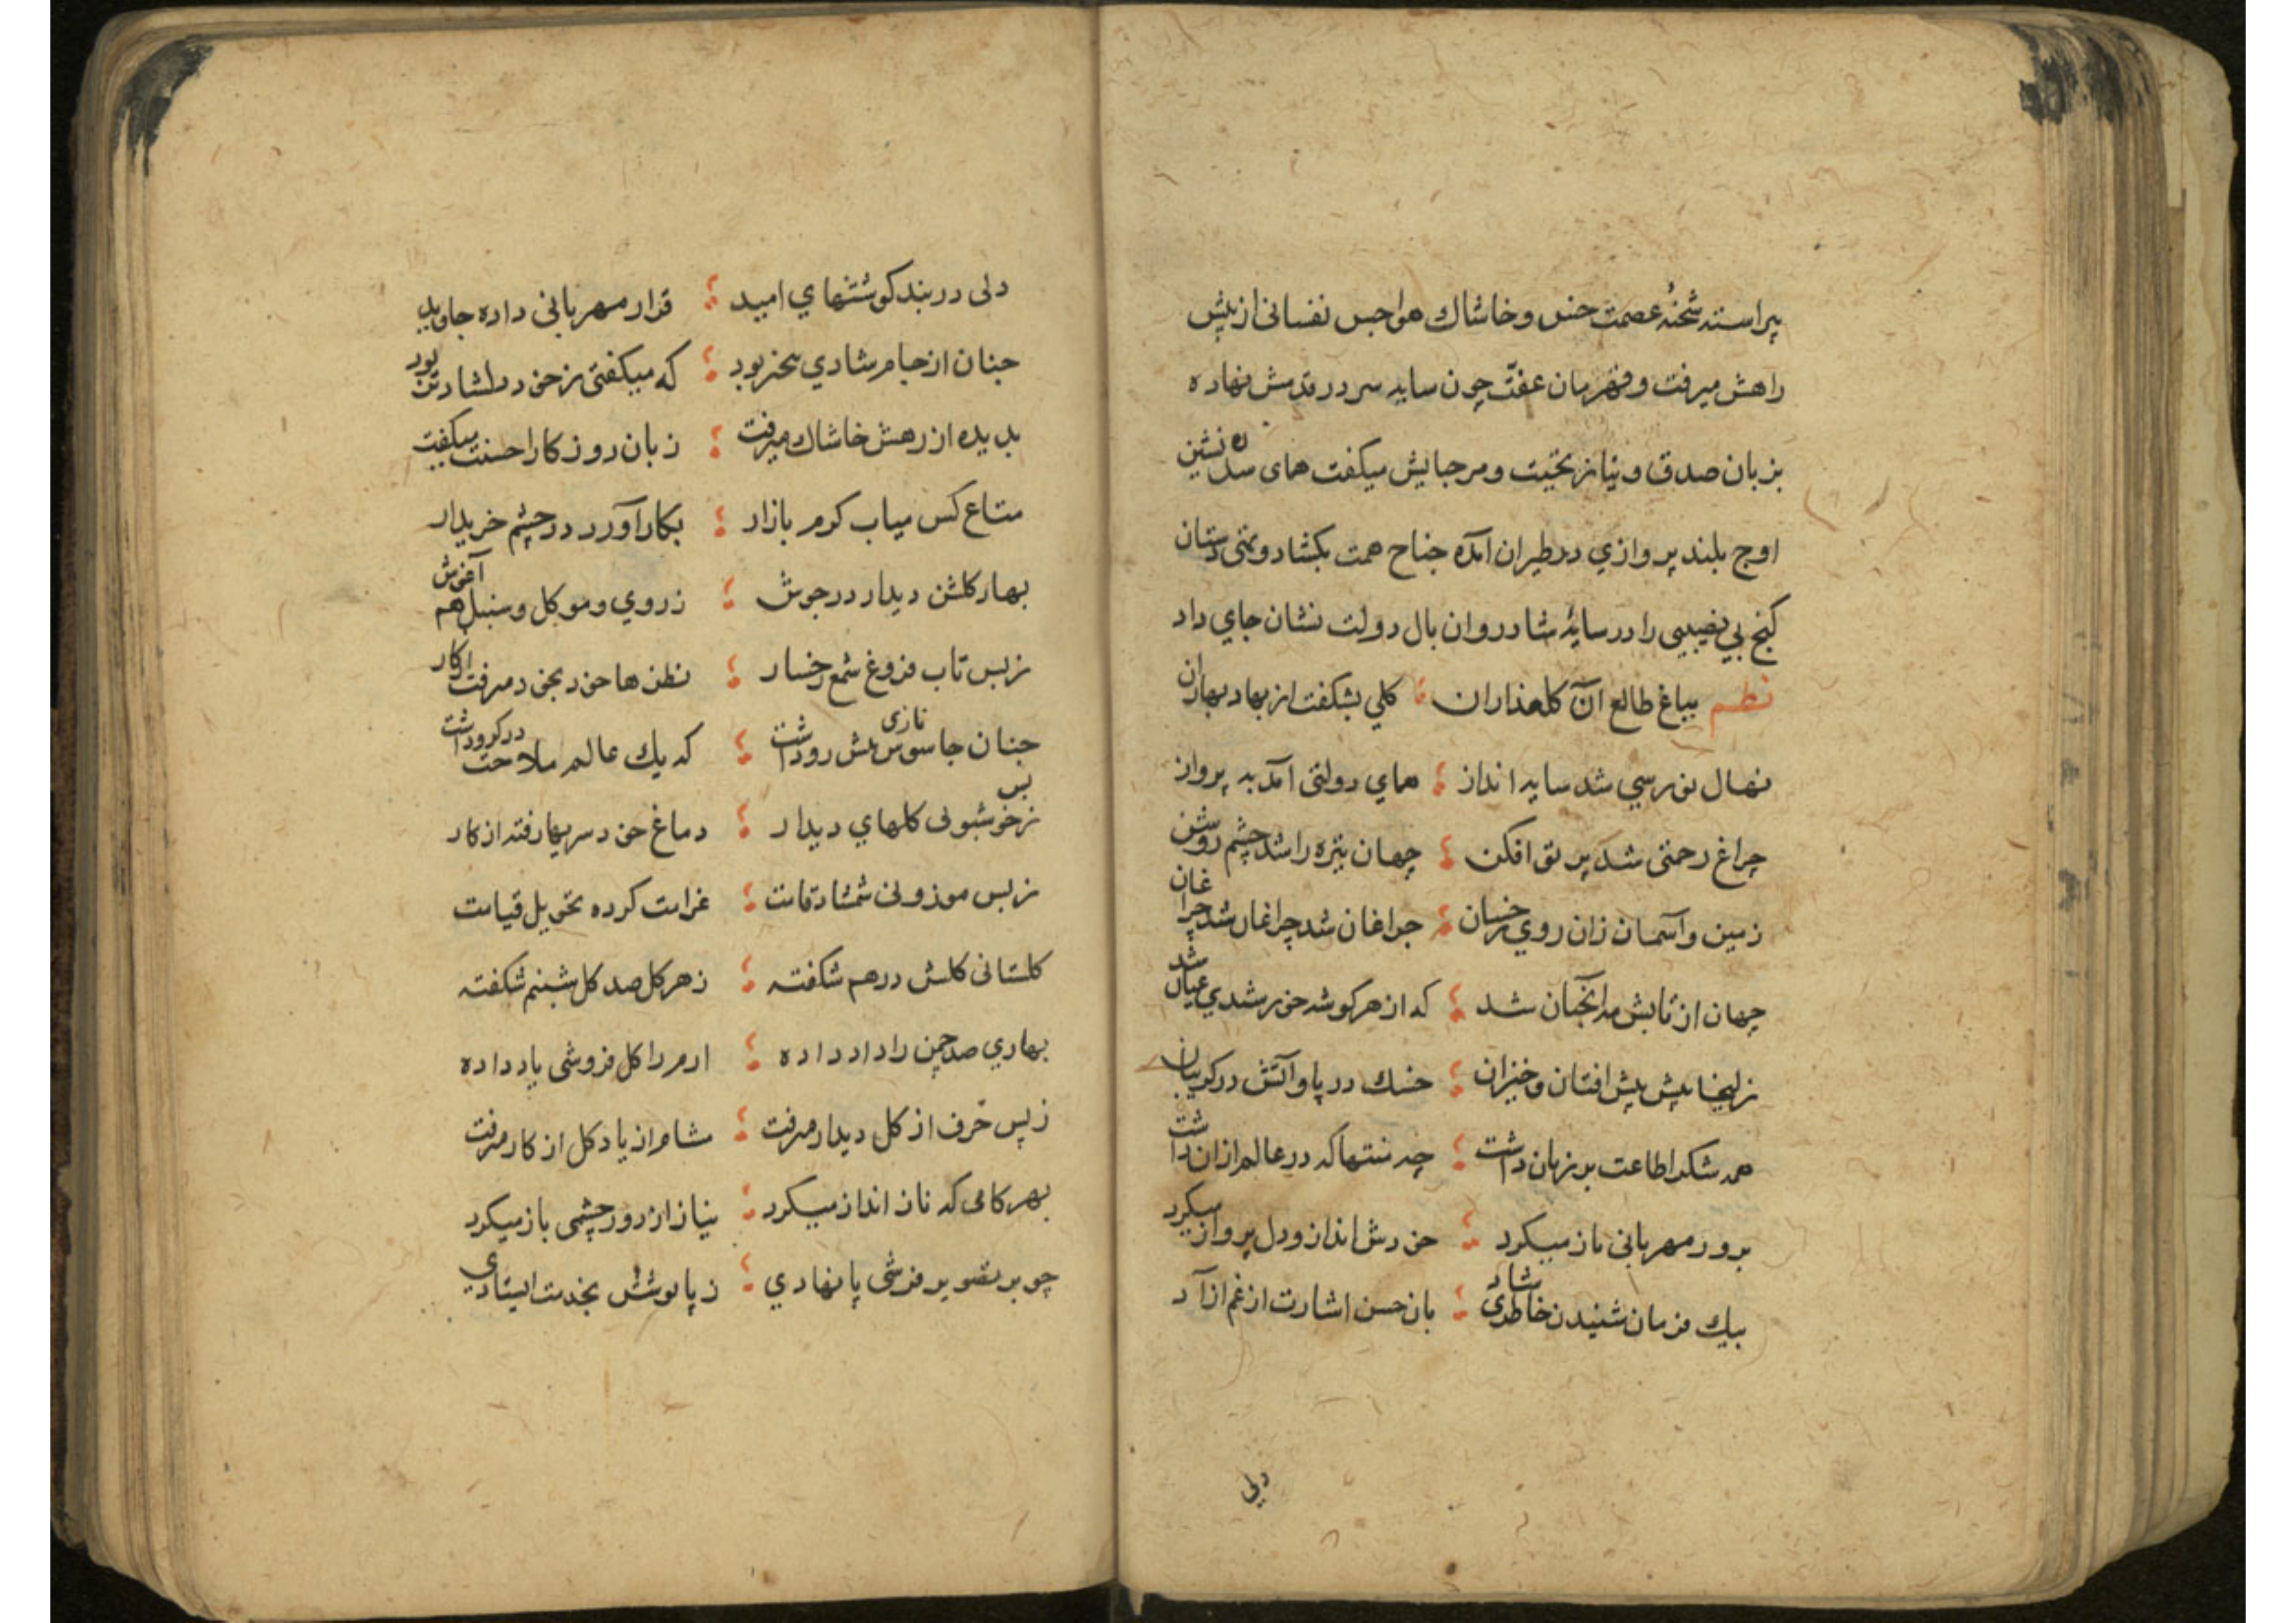 پیراسته شحنهٔ عصمت خس و خاشاك هواجس نفسانی از پیش
راهش میرفت و قهرمان عفّت چون سایه سر در قدمش نهاده
بزبان صدق و نیاز تحیت و مرحبایش میكفت همای سدره نشین
اوج بلند پروازي در طیران آمده جناح همت بكشاد و تهی دستان
كنج بي نصیبی را در سایهٔ شادروان بال دولت نشان جاي داد
نظم بباغ طالع آن كلعذاران كلي بشكفت از بهاد بهاران
نهال نورسي شد سایه انداز همای دولتی آمد به پرواز
چراغ رحمتی شد پرتو افكن جهان تیره را شد چشم روشن
زمین و آسمان زان روي خوبان چراغان شد چراغان شد چراغان
جهان از تابش مه آنچنان شد كه از هر كوشه خورشدي عیان شد
زلیخا پیش پیش افتان و خیزان خسك در پا و آتش در كریبان
همه شكر اطاعت بر زبان داشت چه منتها كه در عالم از ان داشت
برو در مهربانی باز میكرد خودش انداز و دل پرواز میكرد
بیك فرمان شنیدن خاطری شاد بان حسن اشارت از غم آزاد
دلی
دلی در بند كوششهاي امید قرار مهربانی داده جاوید
چنان از جام شادي بیخبر بود كه میكفتی ز خود دلشادتر بود
بدیده از رهش خاشاك میرفت زبان روزكار احسنت میكفت
متاع كس میاب كرم بازار بكار آورد در چشم خریدار
بهار كلشن دیدار در جوش ز روي و مو كل و سنبل هم آغوش
ز بس تاب فروغ شمع رخسار نظرها خود بخود میرفت از كار
چنان جاسوس نازی پیش رو داشت كه یك عالم ملاحت در كرو داشت
ز بس خوشبوئی كلهاي دیدار دماغ خود سر بهار رفته از كار
ز بس موزونی شمشاد قامت غرامت كرده تحویل قیامت
كلستانی كلش درهم شكفته ز هر كل صد كل شبنم شكفته
بهاري صد چمن را داد داده ارم را كل فروشی یاد داده
ز پس حرف از كل دیدار میرفت مشام از یاد كل از كار میرفت
بهر كامی كه ناز انداز میكرد نیاز از دور چشمی باز میكرد
چو بر تصویر فرشی پا نهادي ز پابوسش بخدمت ایستادي